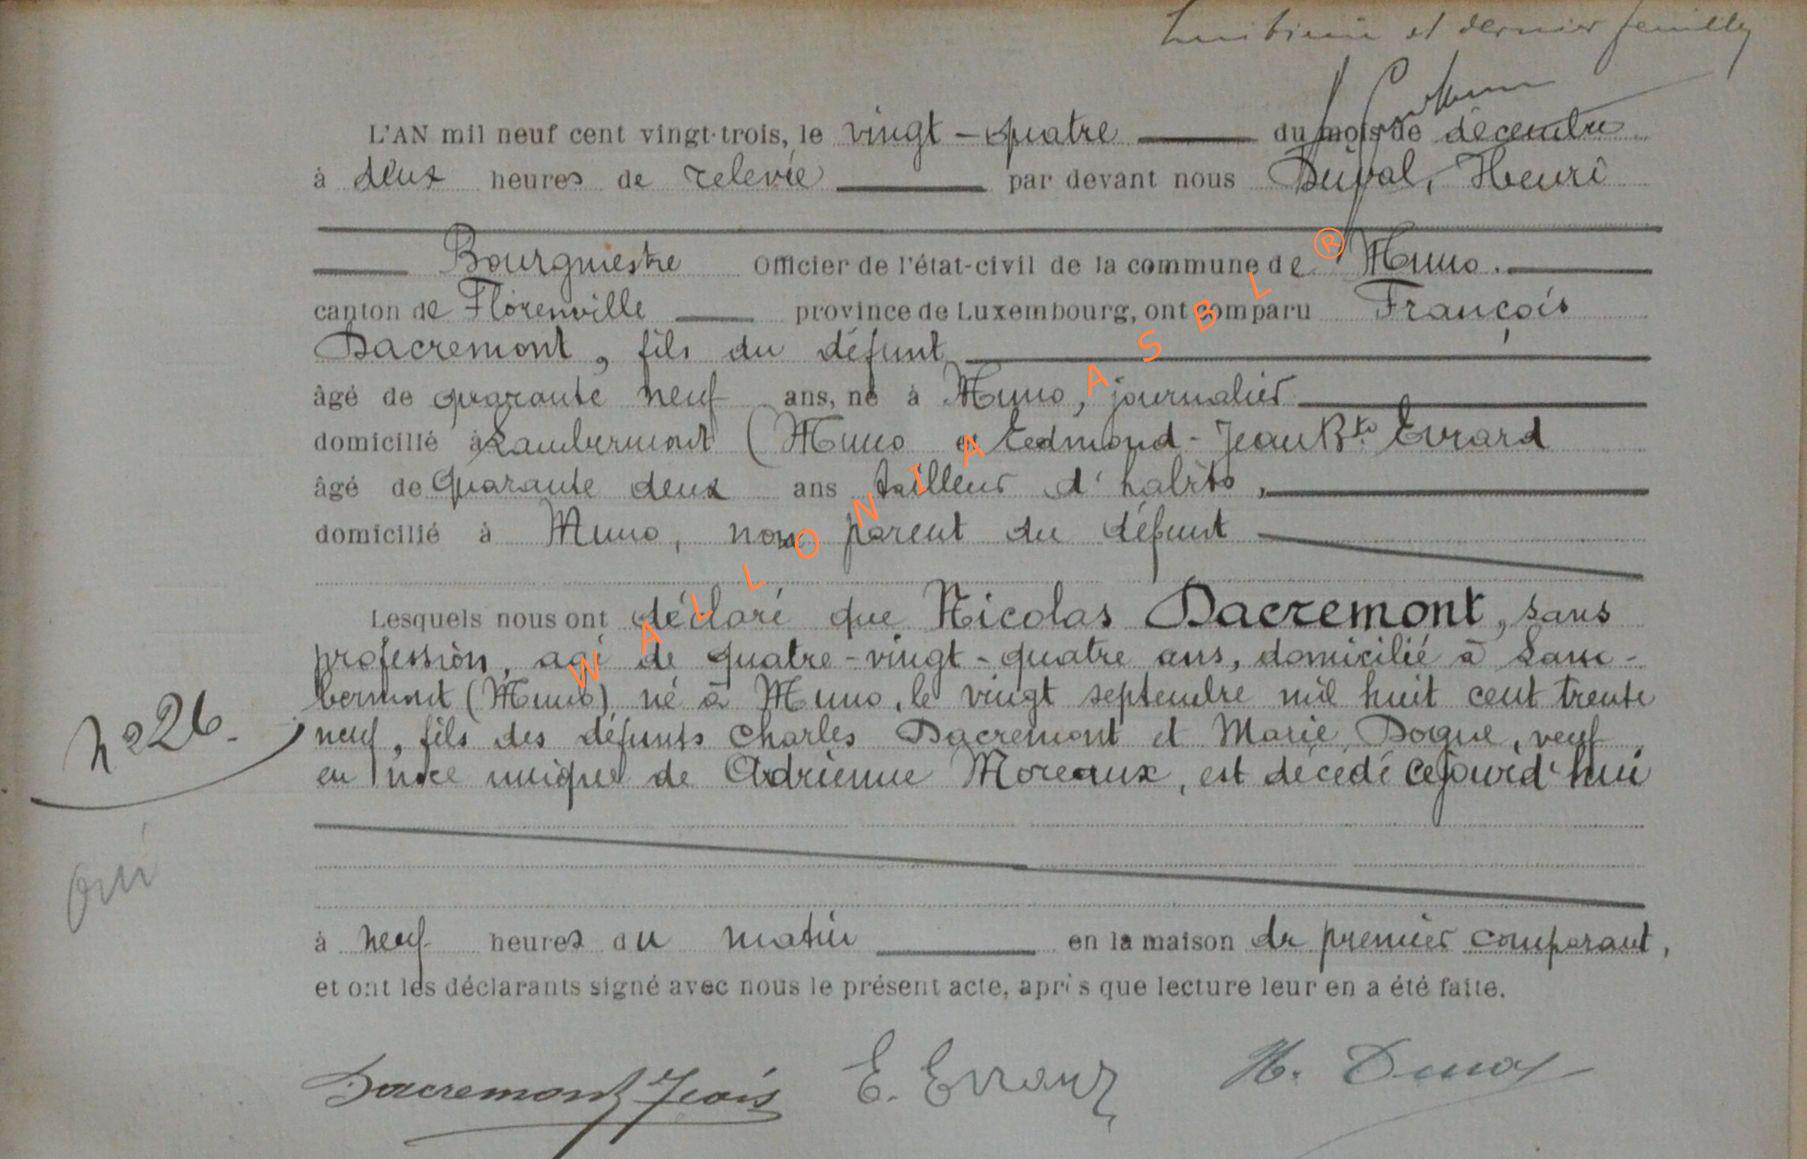 huitième et dernier feuillet
L'AN mil neuf cent vingt-trois, le vingt-quatre du mois de décembre
à deux heures de relevée par devant nous Duval, Henri
Bourgmestre Officier de l'état-civil de la commune de Muno.
canton de Florenville province de Luxembourg, ont comparu François
Dacremont, fils du défunt
âgé de quarante neuf ans, né à Muno, journalier
domicilié à Lambermont (Muno et Edmond-Jean Bte Evrard
âgé de quarante deux ans tailleur d'habits,
domicilié à Muno, non parent du défunt
Lesquels nous ont déclaré que Nicolas Dacremont, sans
profession, agé de quatre-vingt-quatre ans, domicilié à Lam-
bermont (Muno) né à Muno, le vingt septembre mil huit cent trente
neuf, fils des défunts Charles Dacremont et Marie Dogne, veuf
en noce unique de Adrienne Moreaux, est décédé cejourd'hui
No 26.
oui
à neuf heures du matin en la maison du premier comparant,
et ont les déclarants signé avec nous le présent acte, après que lecture leur en a été faite.
Dacremont Frçois E. Evrard H. Duval
WALLONIA ASBL ®